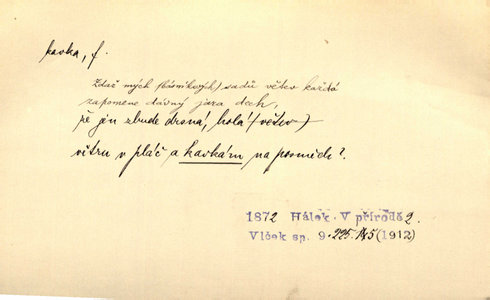 kavka, f.
Zdaž mých (básníkových) sadů větev každá
zapomene dávný jara dech,
že jen zbude drsná, holá (větev)
větru v pláč a kavkám na posměch?
1872 Hálek V přírodě 2.
Vlček sp. 9. 225. 145 (1912)